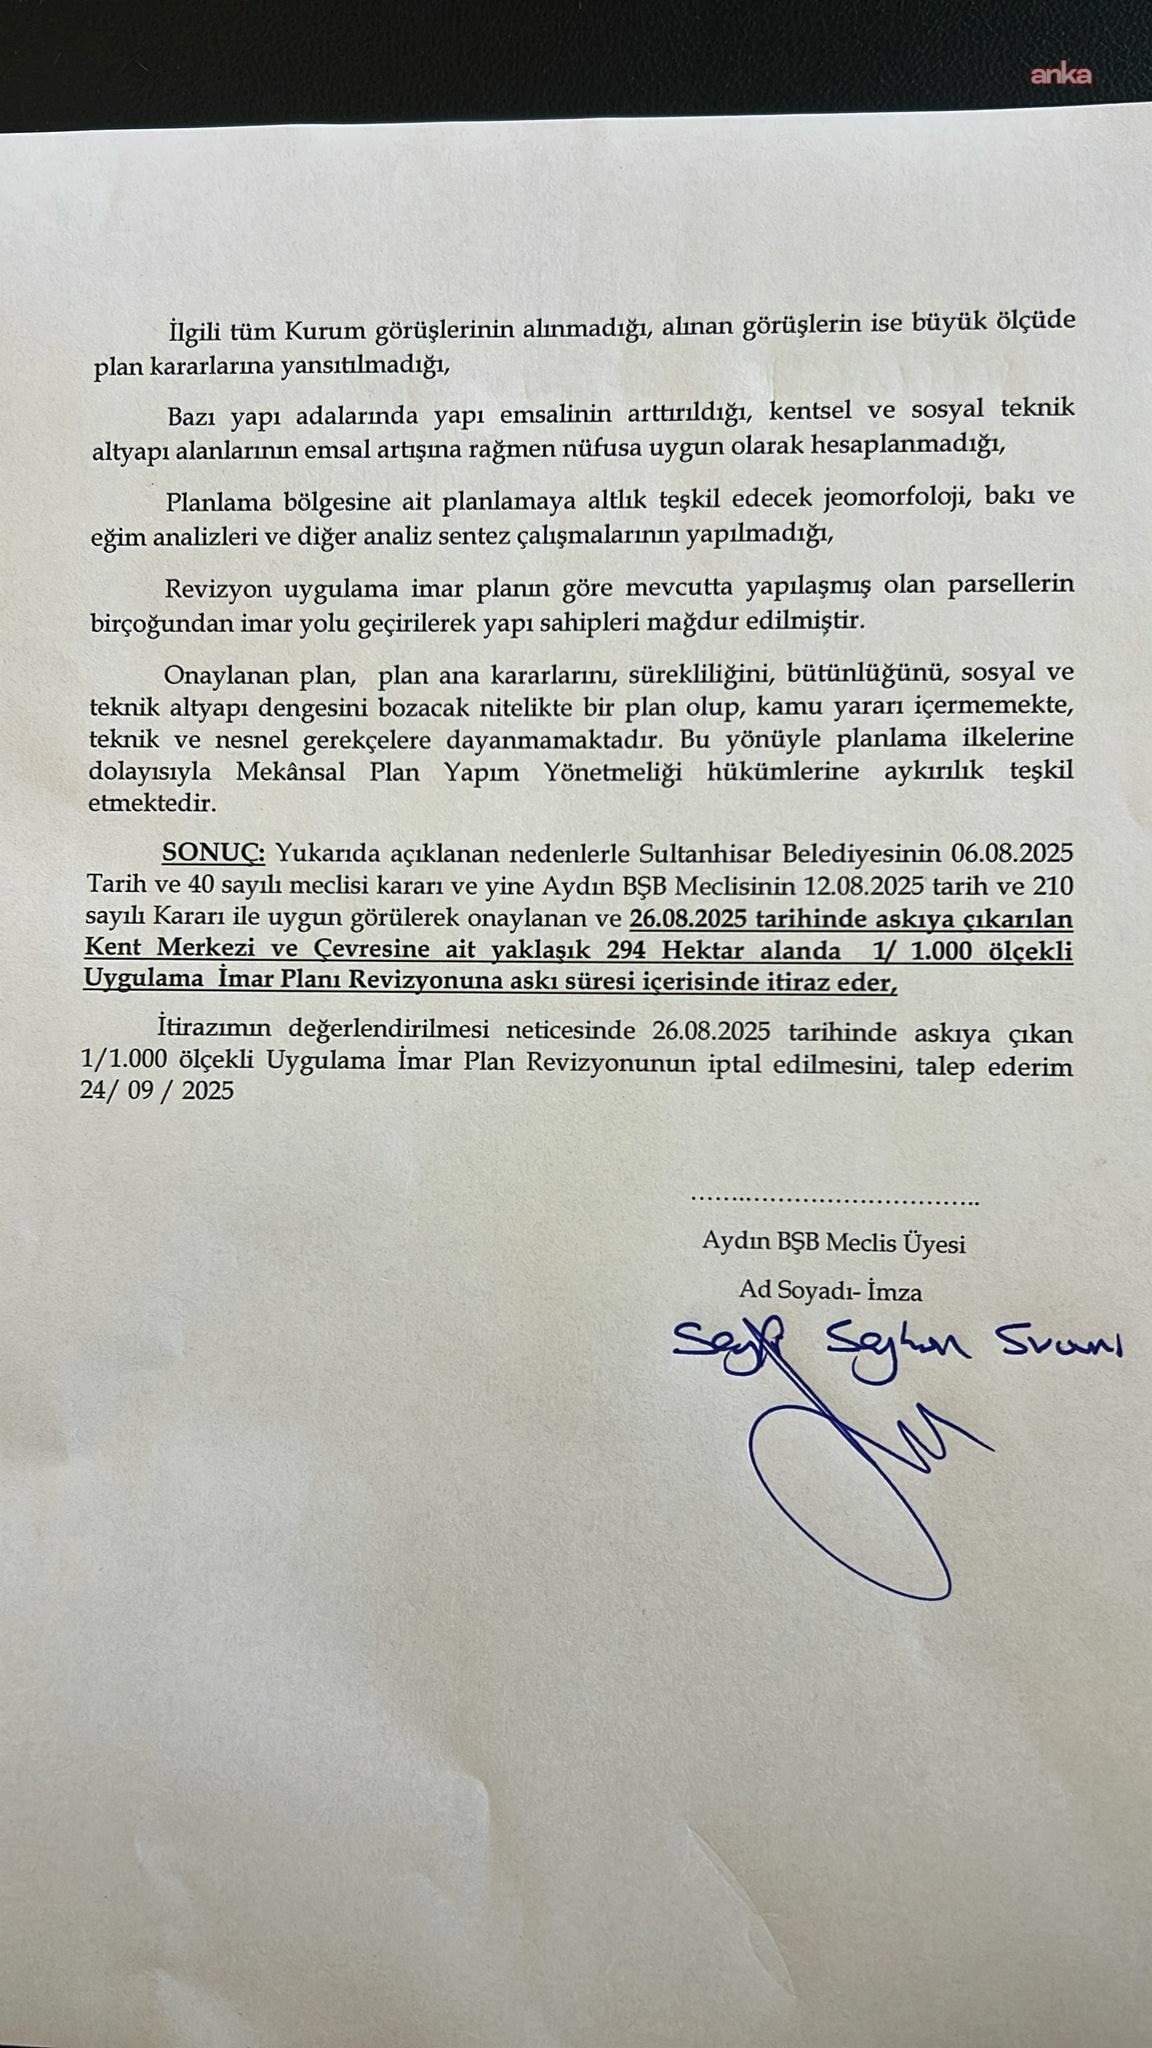 anka
İlgili tüm Kurum görüşlerinin alınmadığı, alınan görüşlerin ise büyük ölçüde
plan kararlarına yansıtılmadığı,
Bazı yapı adalarında yapı emsalinin arttırıldığı, kentsel ve sosyal teknik
altyapı alanlarının emsal artışına rağmen nüfusa uygun olarak hesaplanmadığı,
Planlama bölgesine ait planlamaya altlık teşkil edecek jeomorfoloji, bakı ve
eğim analizleri ve diğer analiz sentez çalışmalarının yapılmadığı,
Revizyon uygulama imar planın göre mevcutta yapılaşmış olan parsellerin
birçoğundan imar yolu geçirilerek yapı sahipleri mağdur edilmiştir.
Onaylanan plan, plan ana kararlarını, sürekliliğini, bütünlüğünü, sosyal ve
teknik altyapı dengesini bozacak nitelikte bir plan olup, kamu yararı içermemekte,
teknik ve nesnel gerekçelere dayanmamaktadır. Bu yönüyle planlama ilkelerine
dolayısıyla Mekânsal Plan Yapım Yönetmeliği hükümlerine aykırılık teşkil
etmektedir.
SONUÇ: Yukarıda açıklanan nedenlerle Sultanhisar Belediyesinin 06.08.2025
Tarih ve 40 sayılı meclisi kararı ve yine Aydın BŞB Meclisinin 12.08.2025 tarih ve 210
sayılı Kararı ile uygun görülerek onaylanan ve 26.08.2025 tarihinde askıya çıkarılan
Kent Merkezi ve Çevresine ait yaklaşık 294 Hektar alanda 1/ 1.000 ölçekli
Uygulama İmar Planı Revizyonuna askı süresi içerisinde itiraz eder,
İtirazımın değerlendirilmesi neticesinde 26.08.2025 tarihinde askıya çıkan
1/1.000 ölçekli Uygulama İmar Plan Revizyonunun iptal edilmesini, talep ederim
24/ 09 / 2025
......................................
Aydın BŞB Meclis Üyesi
Ad Soyadı- İmza